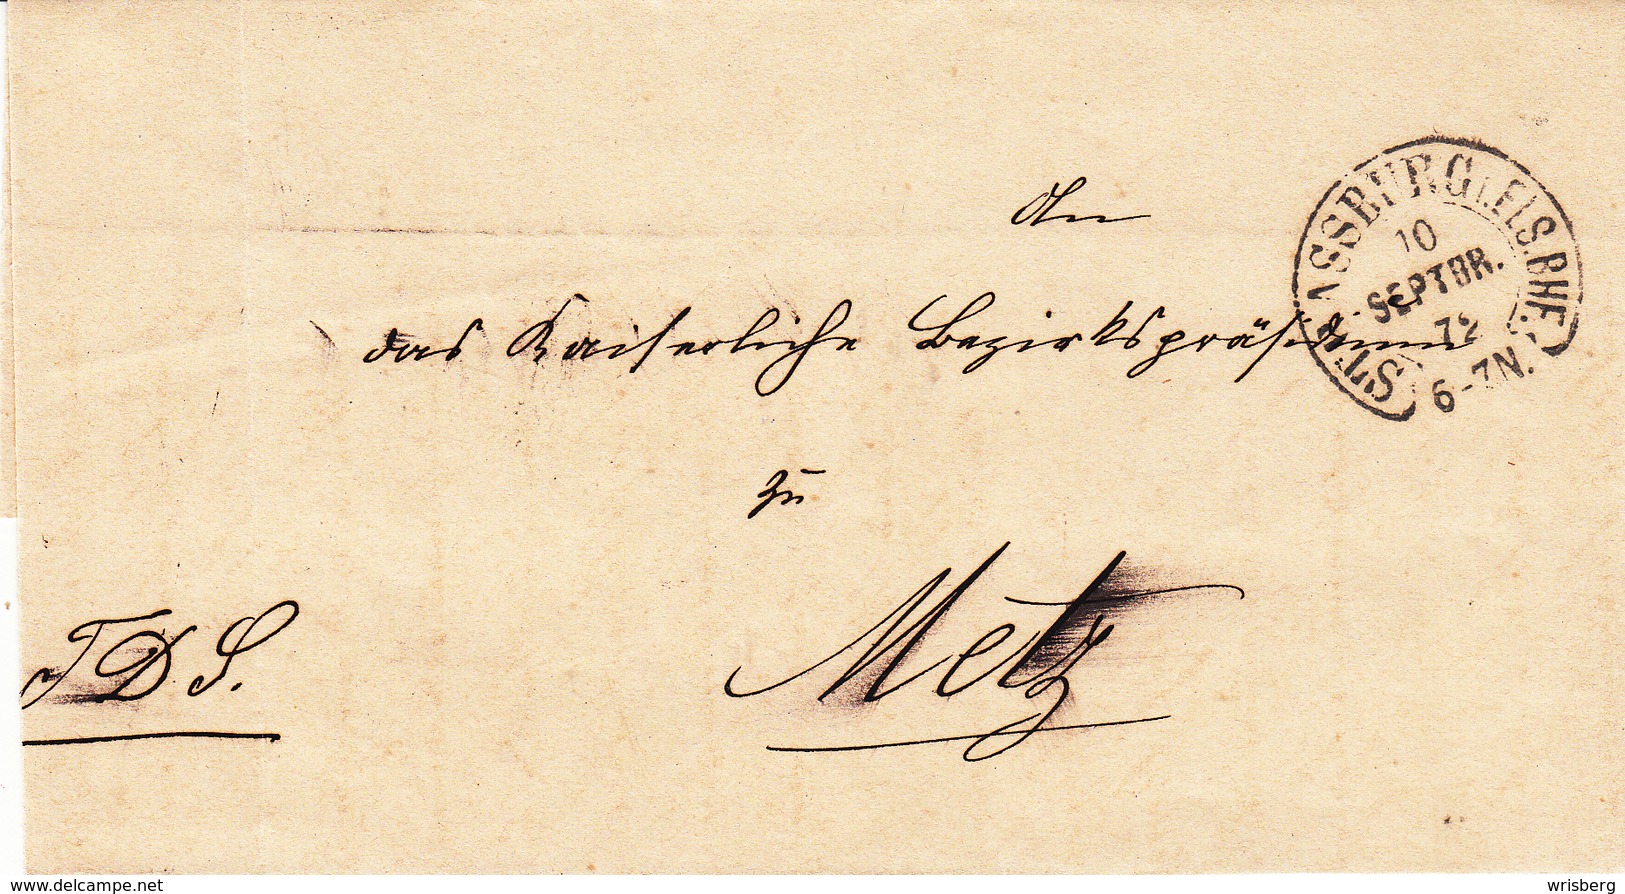 An
das Kaiserliche Bezirkspräsidium
zu
Metz
F D S.
STRASSBURG i. ELS. BHF.
10
SEPTBR.
72
6-7N.
www.delcampe.net
wrisberg